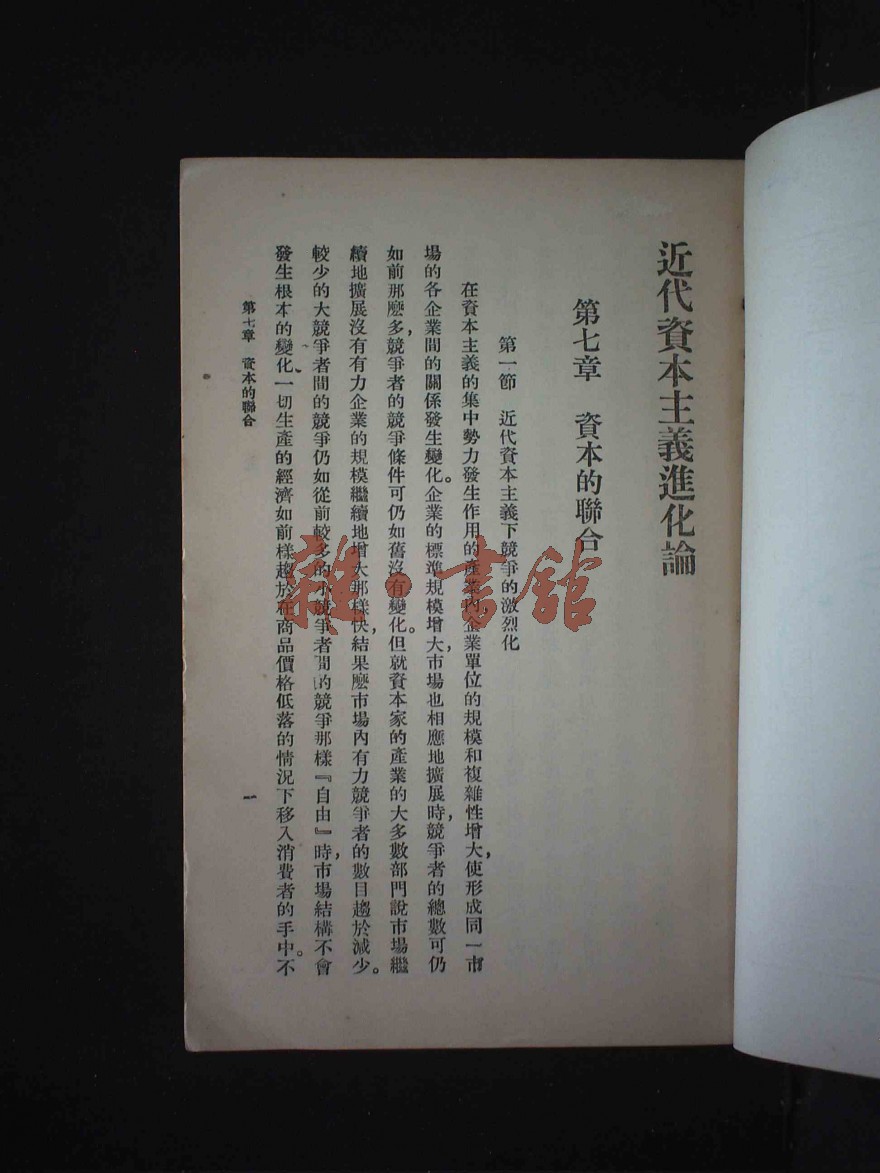 近代資本主義進化論
第七章　資本的聯合
第一節　近代資本主義下競爭的激烈化
在資本主義的集中勢力發生作用的產業內，企業單位的規模和複雜性增大，使形成同一市
場的各企業間的關係發生變化。企業的標準規模增大，市場也相應地擴展時，競爭者的總數可仍
如前那麽多，競爭者的競爭條件可仍如舊沒有變化。但就資本家的產業的大多數部門說，市場繼
續地擴展沒有有力企業的規模繼續地增大那樣快，結果麽，市場內有力競爭者的數目趨於減少。
較少的大競爭者間的競爭仍如從前較多的小競爭者間的競爭那樣『自由』時，市場結構不會
發生根本的變化，一切生產的經濟如前樣趨於在商品價格低落的情況下移入消費者的手中。不
第七章　資本的聯合
一
雜·書館